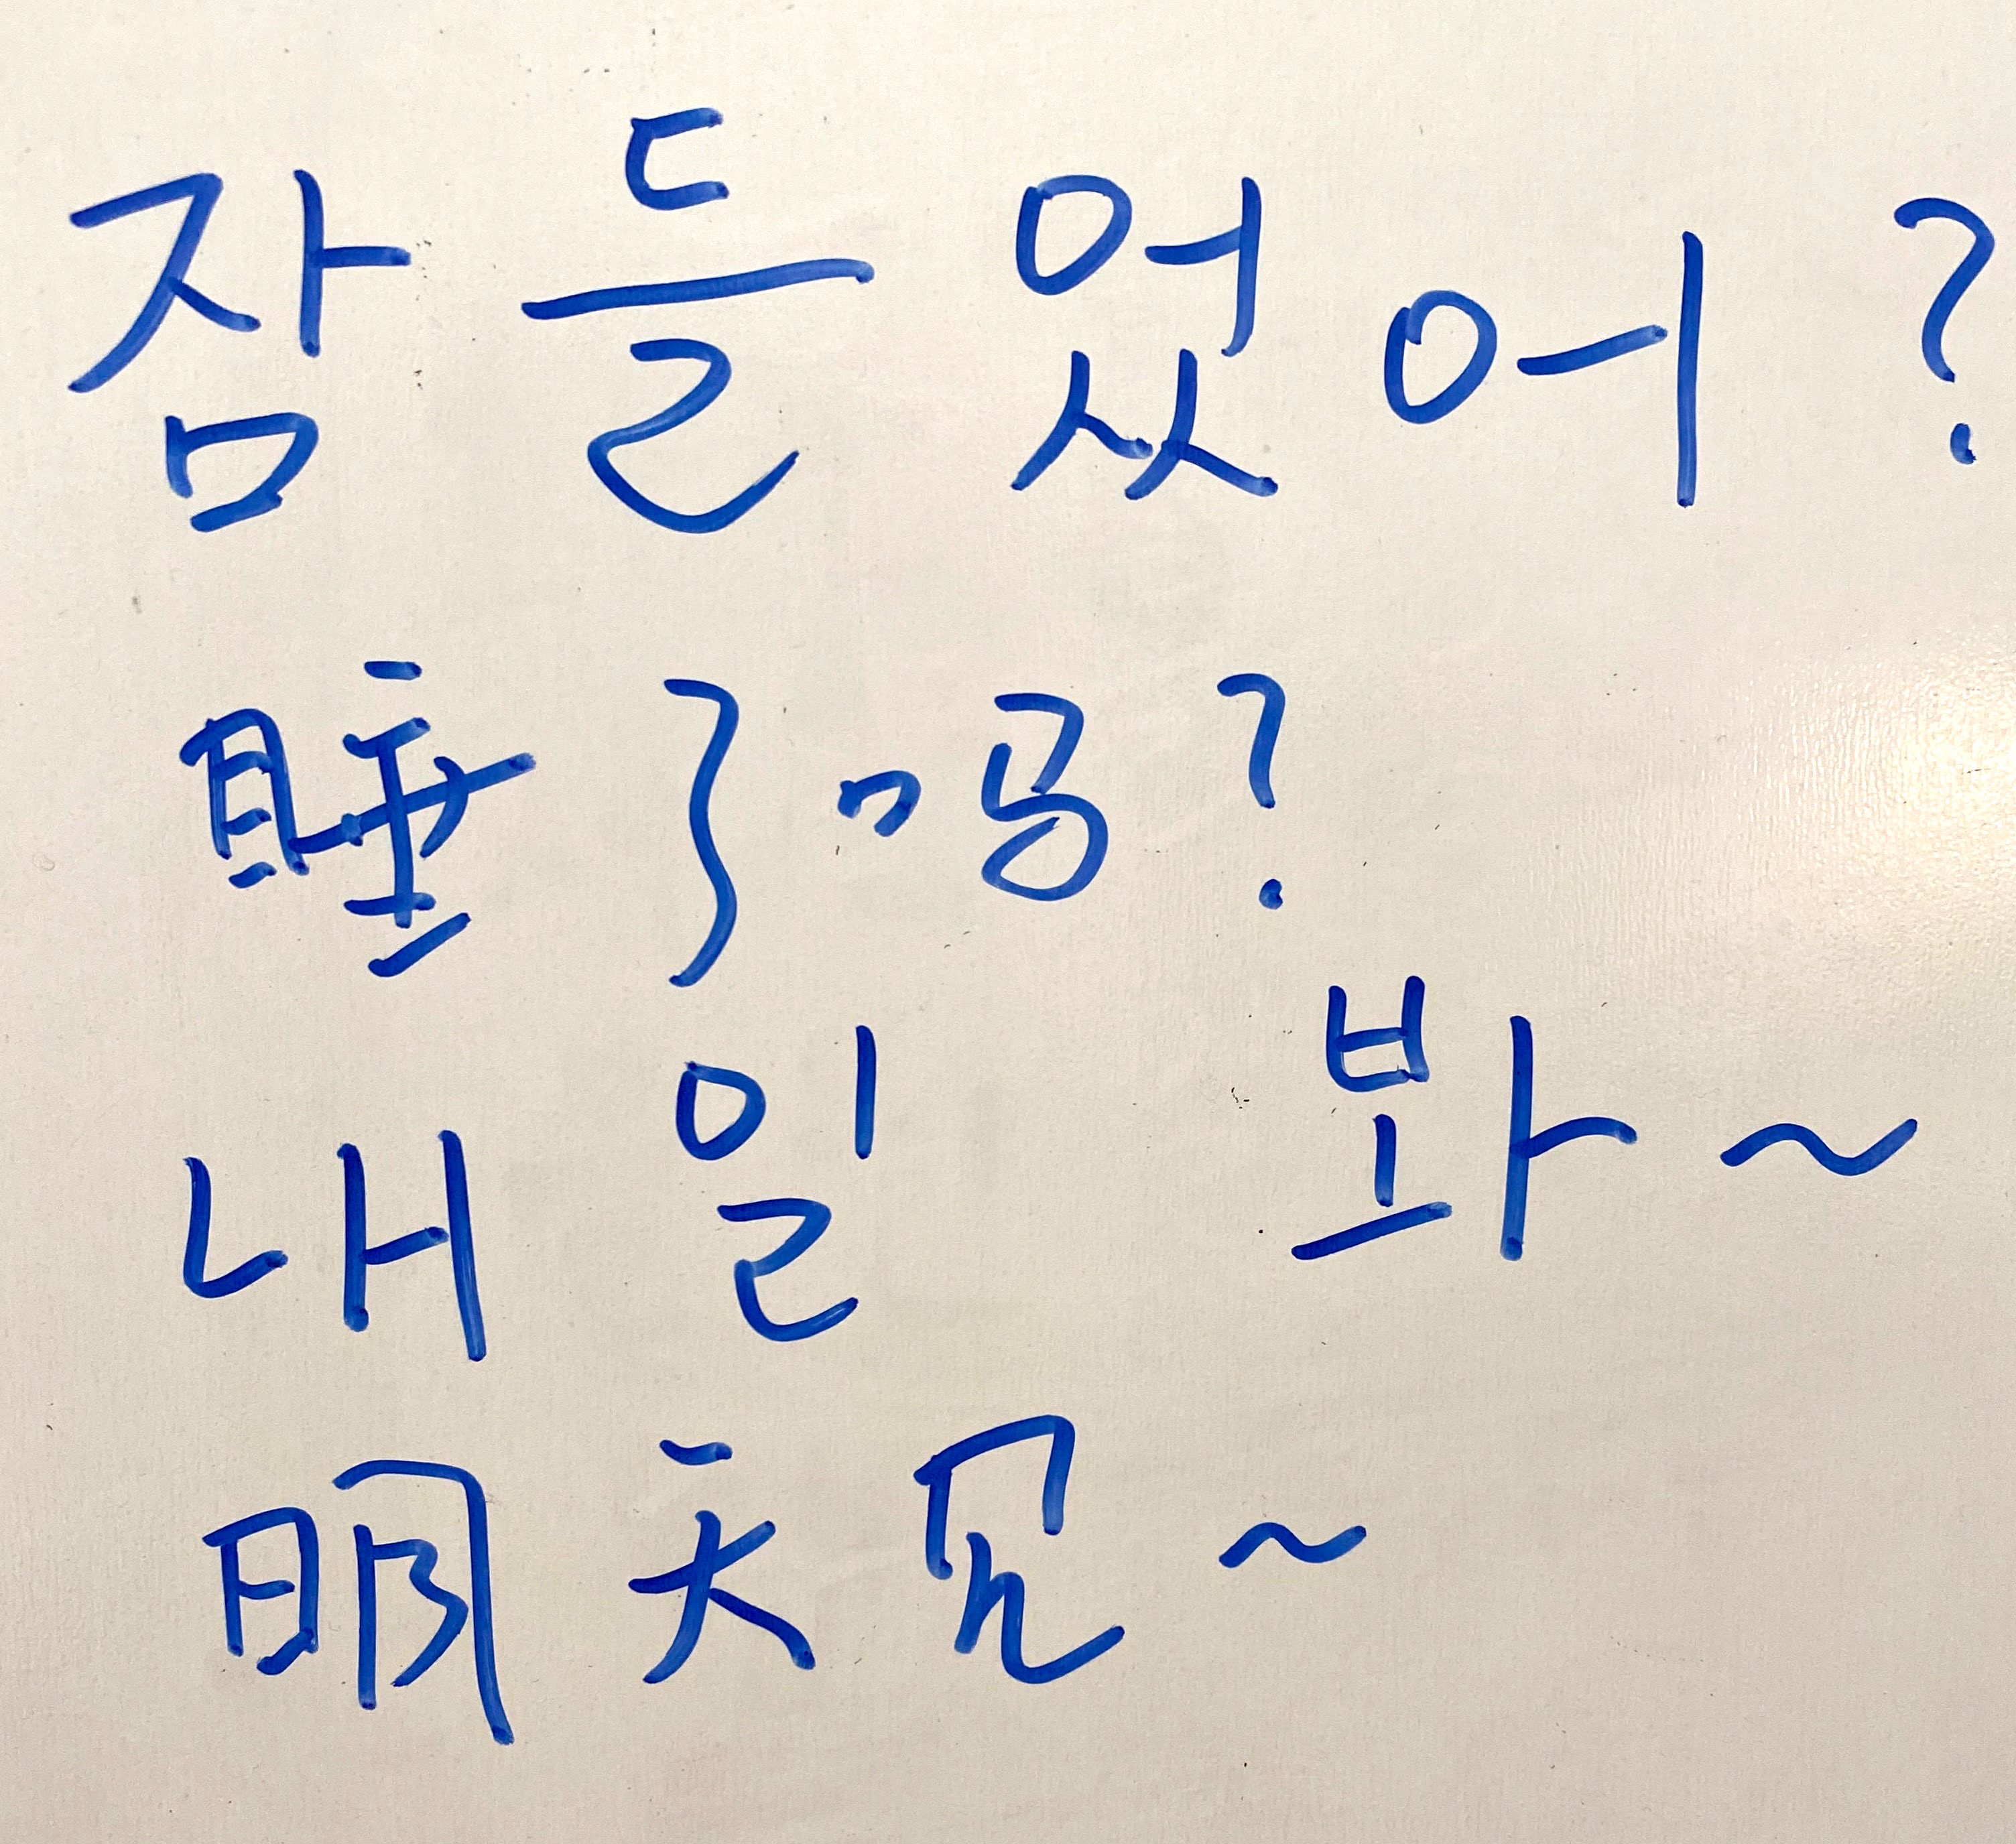 잠들었어?
睡了吗?
내일 봐~
明天见~